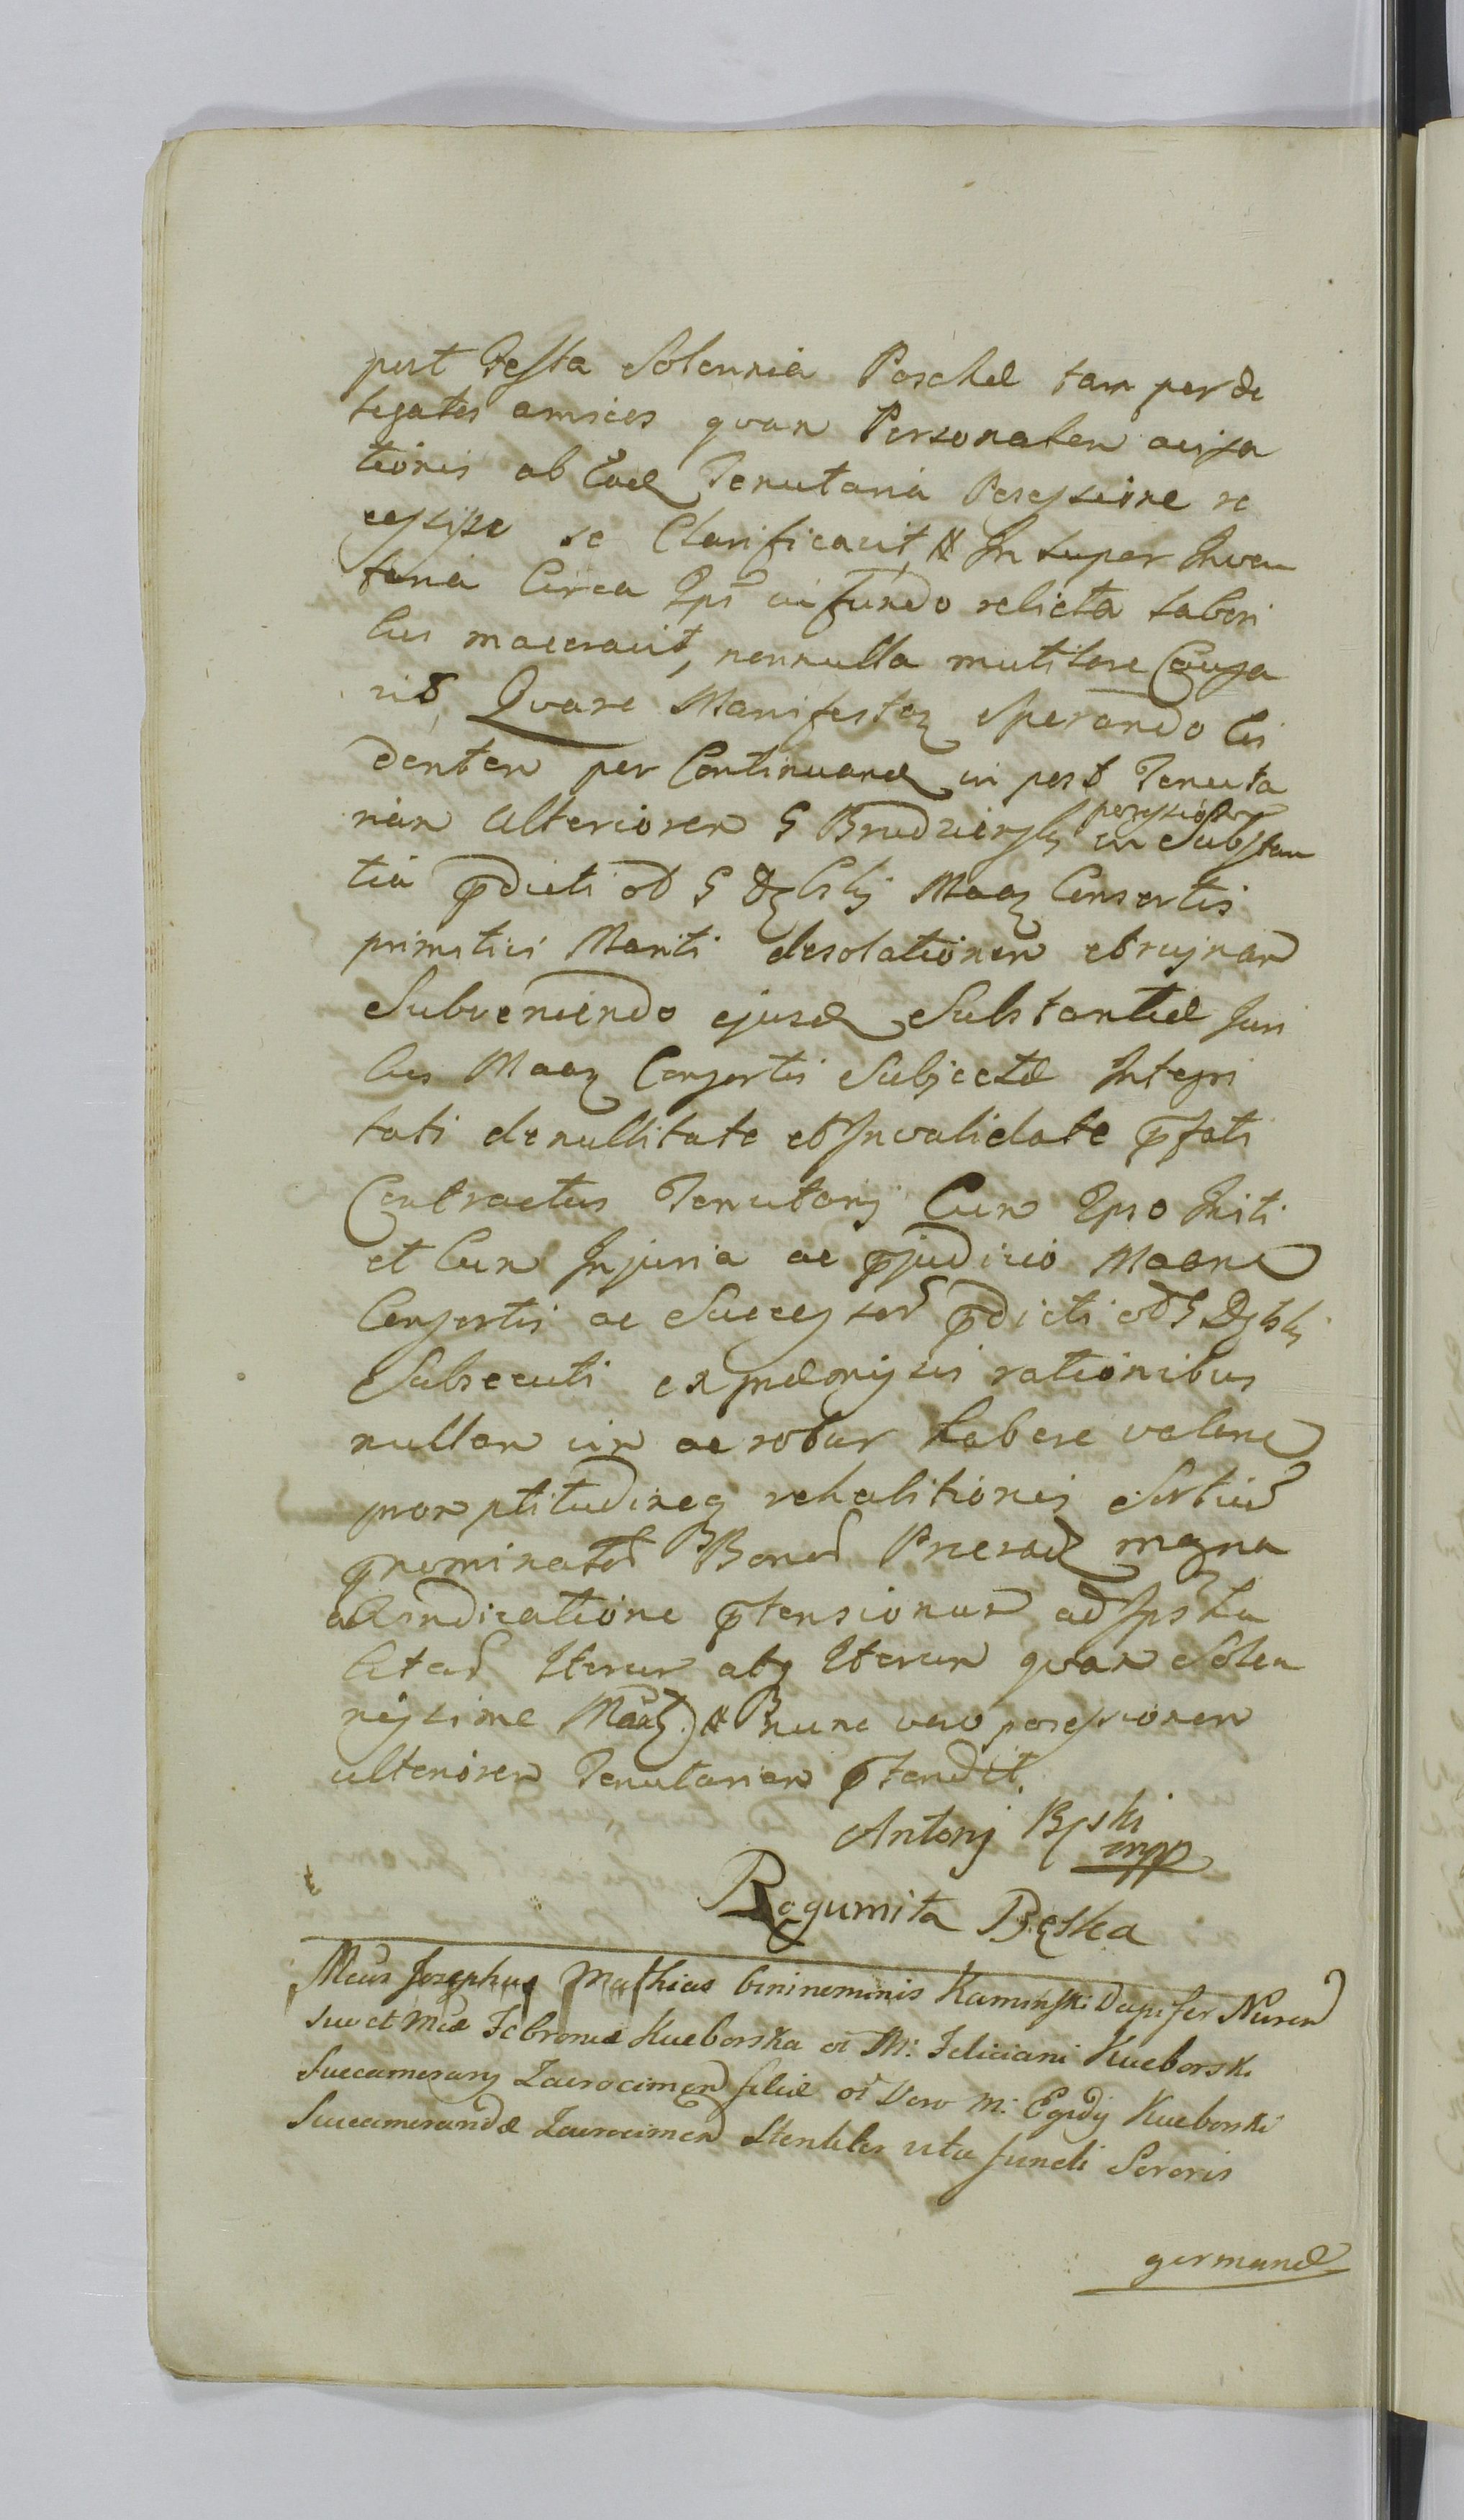 post Festa Solennia Paschae tam per de
legatos amicos quam Personalem avisa
tionis ab Ead Tenutaria Possessione re
cessisse se Clarificavit, & Insuper Inven
taria Circa Ips in fundo relicta labori
bus maceravit, nonnulla mutilare Causa
vit, Quare Manifestaz Sperando
denten per Continuand in post Tenuta
possessioē
riam Ulteriorem G Brudzienski in Substan
tia pdicti ol G Maaz Consortis
primitivi Mariti desolationem et ruinam
Subveniendo ejusd Substantiae Juri
bus Maaz Consortis Subjectae Integri
tati de nullitate et Invalidate pfati
Contractus Tenutarij Cum Ipso Initi
et Cum Injuria ac pjudicio Maane
Consortis ac Successor pdicti ol G
Subsecuti ex praemissis rationibus
nullam vim ac robur habere valene
promptitudineq rehabitionis Sortiu
pnominator BBonor magna
vindicatione ptensionum ad Ips
Citad Iterum atq Iterum quam Solen
nissime Maaz & nunc vero possessionem
ulteriorem Tenutariam ptendit.
Antonj Bęski
mpp
Bogumiła Bęska
Mcus Josephus Mathias binineminis Kamiński Dapifer Nuren
suo et Mcae Febroniae Kuczborska ol M: Feliciani Kuczborski
Succamerarij Zawrocimen filiae ol Vero M: Egidij Kuczborski
Succamerandae Zawrocimen Steriliter vita functi Sororis
germanae